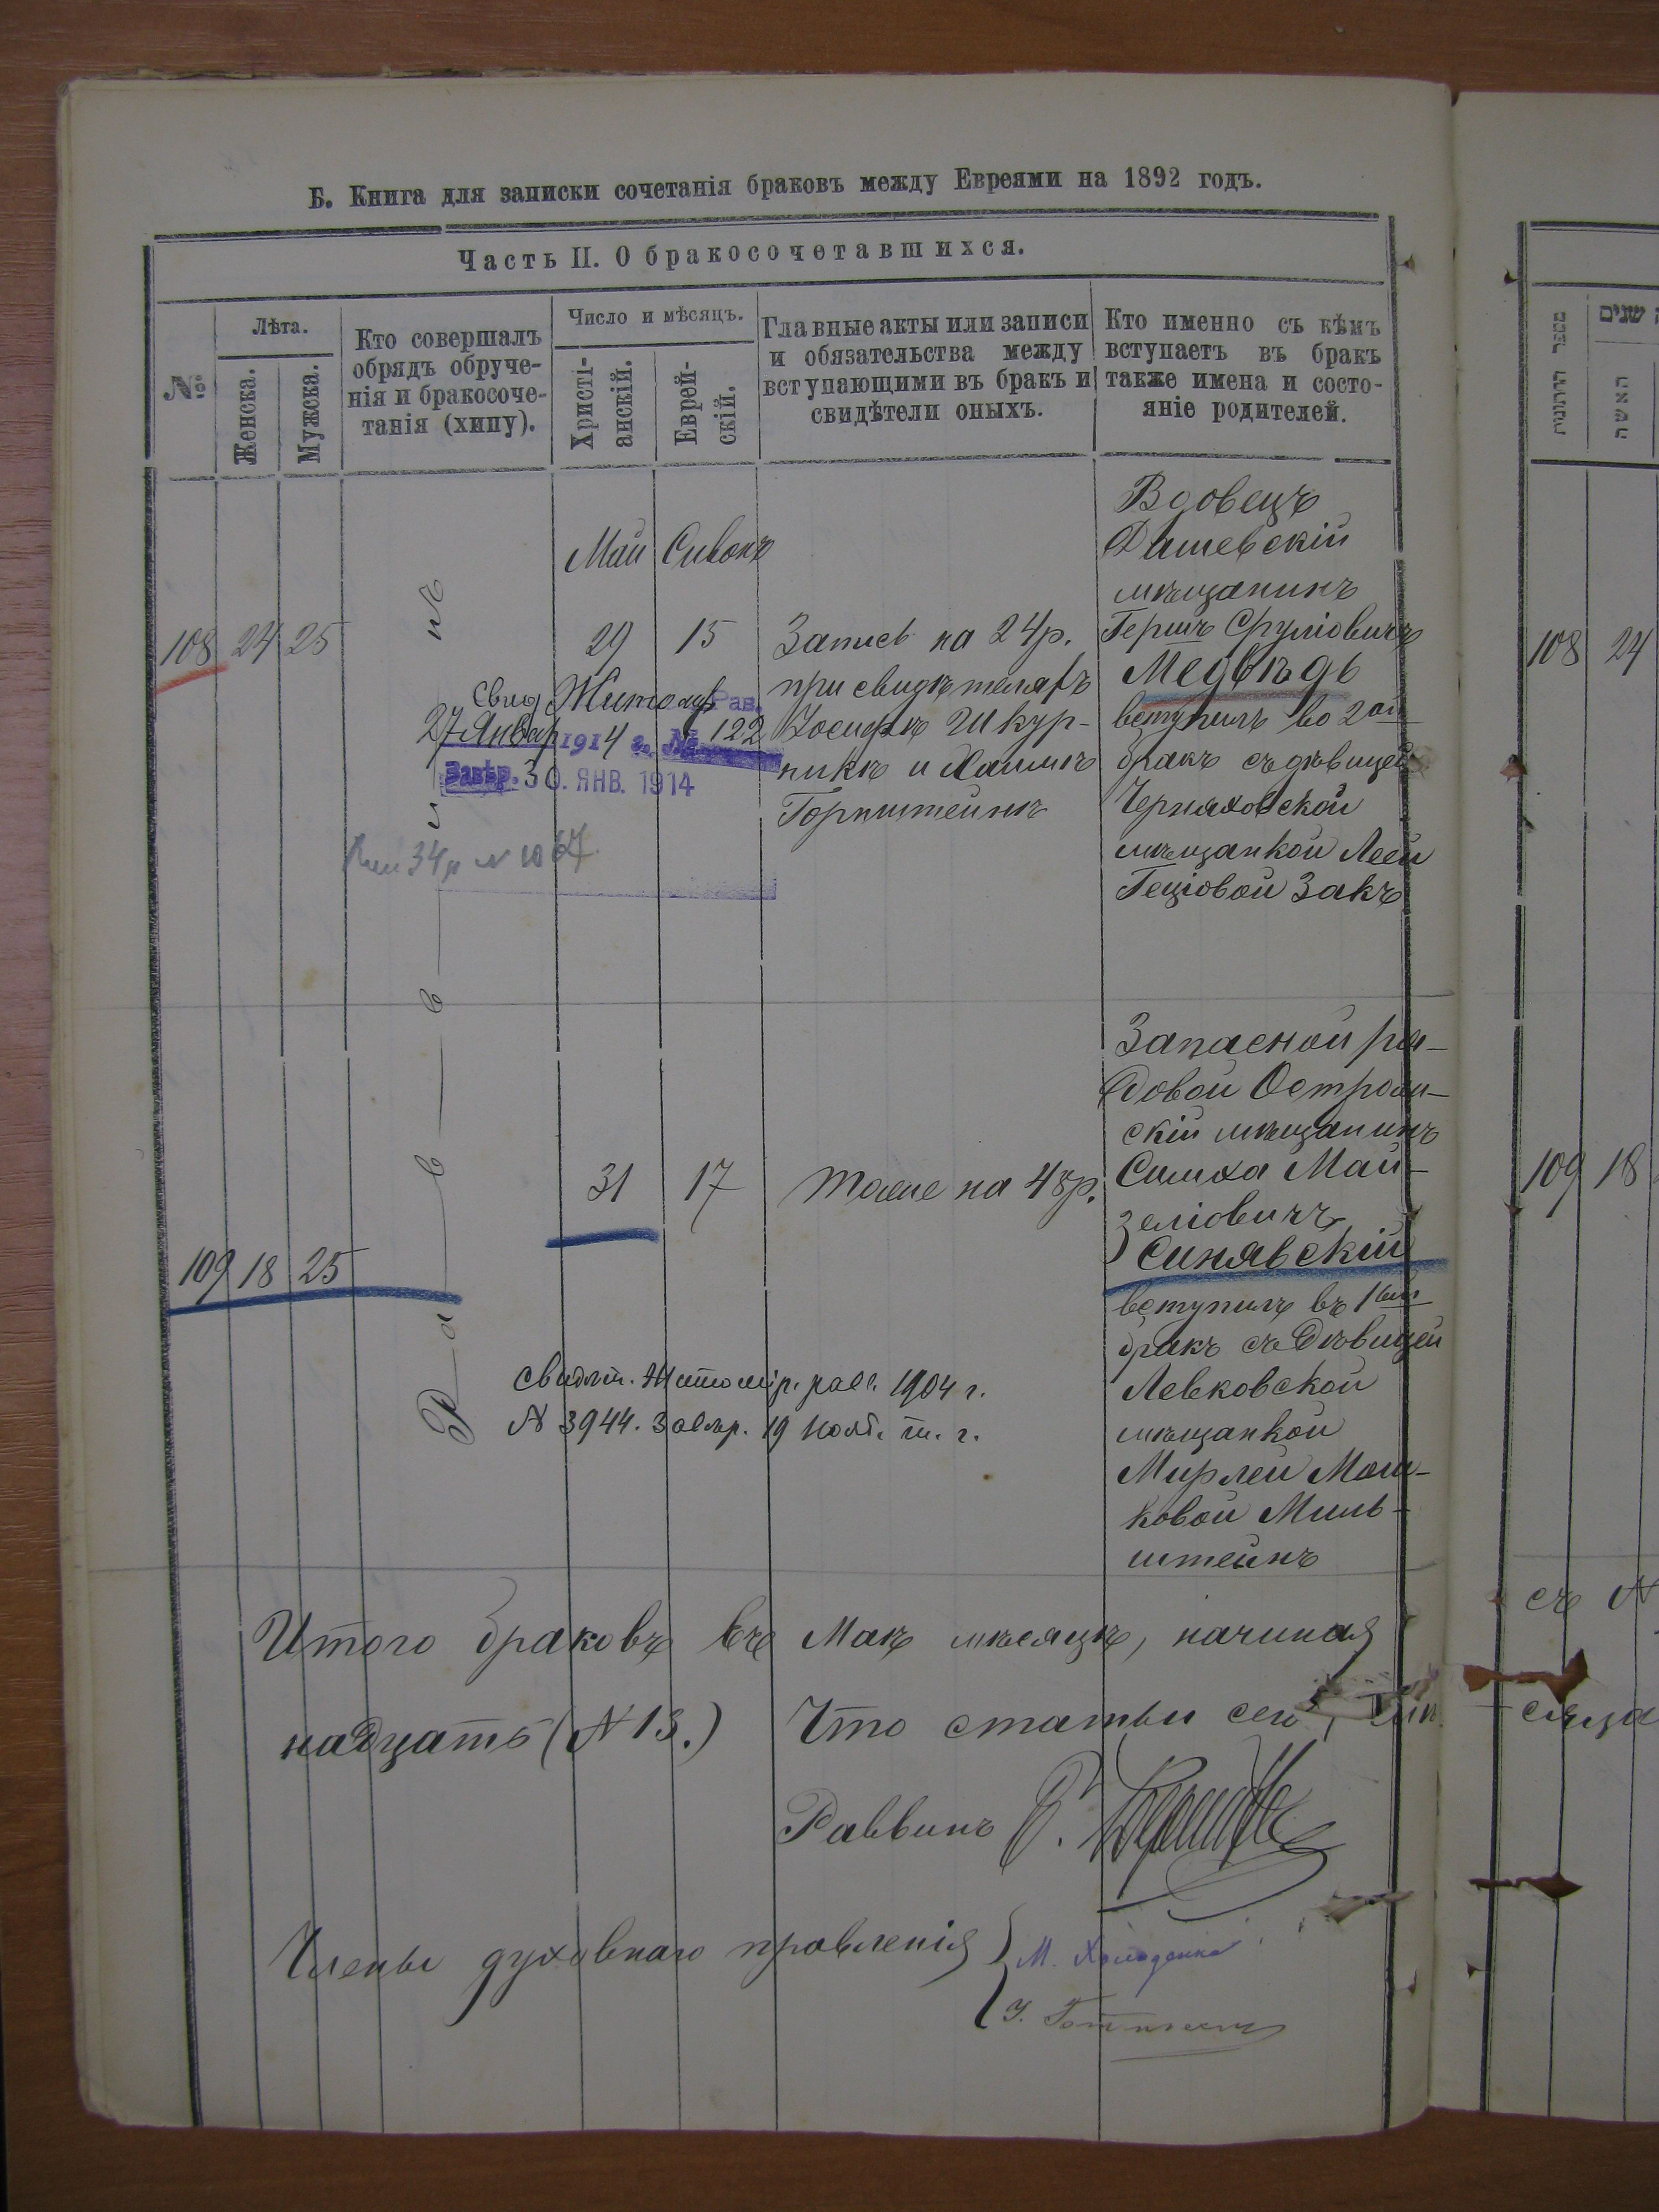 Б. Книга для записки сочетанія браковъ между Евреями на 1892 годъ.
Часть II. О бракосочетавшихся.
№
Лѣта.
Женска.
Мужска.
Кто совершалъ
обрядъ обруче-
нія и бракосоче-
танія (хипу).
Число и мѣсяцъ.
Христі-
анскій.
Еврей-
скій.
Главные акты или записи
и обязательства между
вступающими въ бракъ и
свидѣтели оныхъ.
Кто именно съ кѣмъ
вступаетъ въ бракъ
также имена и состо-
яніе родителей.
108
24
25
Раввинъ
Май
29
Сивонъ
15
Запись на 24 р.
при свидѣтеляхъ
Іосифѣ Шкур-
никѣ и Хаимѣ
Горнштейнѣ
Вдовецъ
Дашевскій
мѣщанинъ
Гершъ Сруліовичъ
Медвѣдь
вступилъ во 2ой
бракъ съ дѣвицей
Черняховской
мѣщанкой Леей
Геціовой Закъ
Свид Житомір Рав.
27 Январ 1914 г. № 122
Завѣр. 30. ЯНВ. 1914
109
18
25
31
17
Тоже на 48 р.
Запасной ря-
довой Острож-
скій мѣщанинъ
Симха Май-
зеліовичъ
Синявскій
вступилъ въ 1вый
бракъ съ дѣвицей
Левковской
мѣщанкой
Мирлей Мош-
ковой Миль-
штейнъ
Свидѣт. Житомір. расс. 1904 г.
№ 3944. Завѣр. 19 Нояб. т. г.
Итого браковъ въ Маѣ мѣсяцѣ, начиная
надцать (№ 13.) Что статьи сего
Раввинъ
Члены духовнаго правленія
М. Холоденко
מספר חתונות
שנים
האשה
108
24
109
18
съ №
сяца